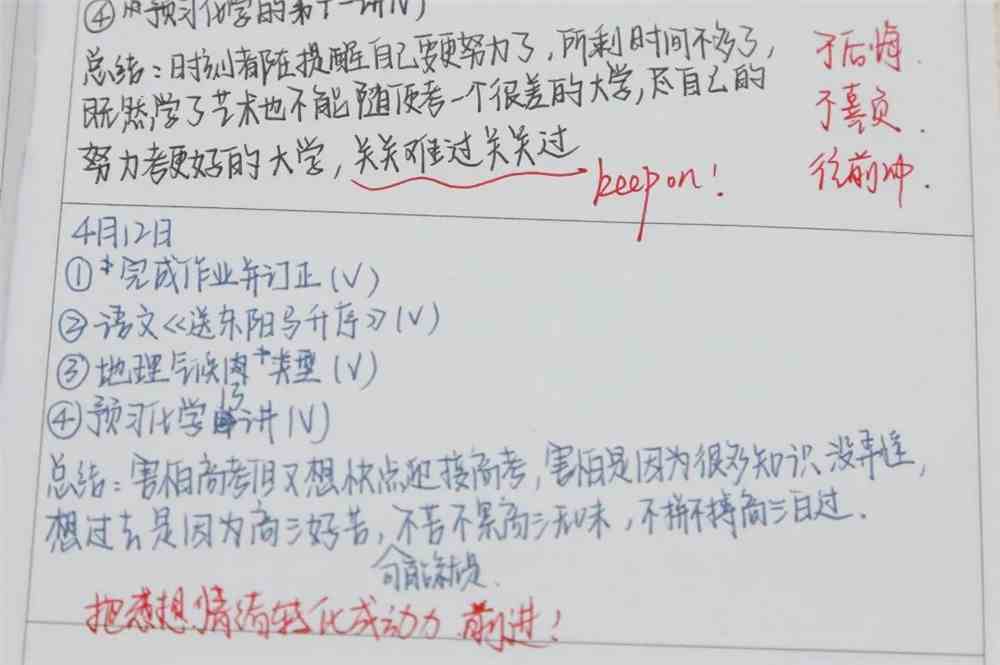 ④ 预习化学的第十一讲(√)
总结：时刻都在提醒自己要更努力了，所剩时间不多了，
既然学了艺术也不能随便考一个很差的大学，尽自己的
努力考更好的大学，关关难过关关过
keep on！
于后悔.
于喜负.
往前冲.
4月12日
①*完成作业并订正(√)
②语文《送东阳马升序》(√)
③地理气候类型(√)
④预习化学13讲(√)
总结：害怕高考但又想快点迎接高考，害怕是因为很多知识没弄懂，
想过去是因为高三好苦，不苦不累高三无味，不拼不搏高三白过.
可能就是.
把想情绪转化成动力 前进！